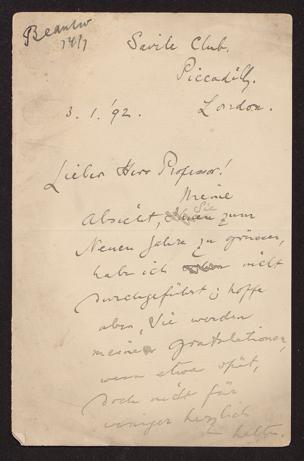 Beantw
14/1
Savile Club.
Piccadilly.
London.
3. 1. '92.
Lieber Herr Professor!
Meine
Absicht, Ihnen Sie zum
Neuen Jahre zu grüssen,
habe ich nicht
durchgeführt; hoffe
aber, Sie werden
meine Gratulationen,
wenn etwas spät,
doch nicht für
weniger herzlich
halten.